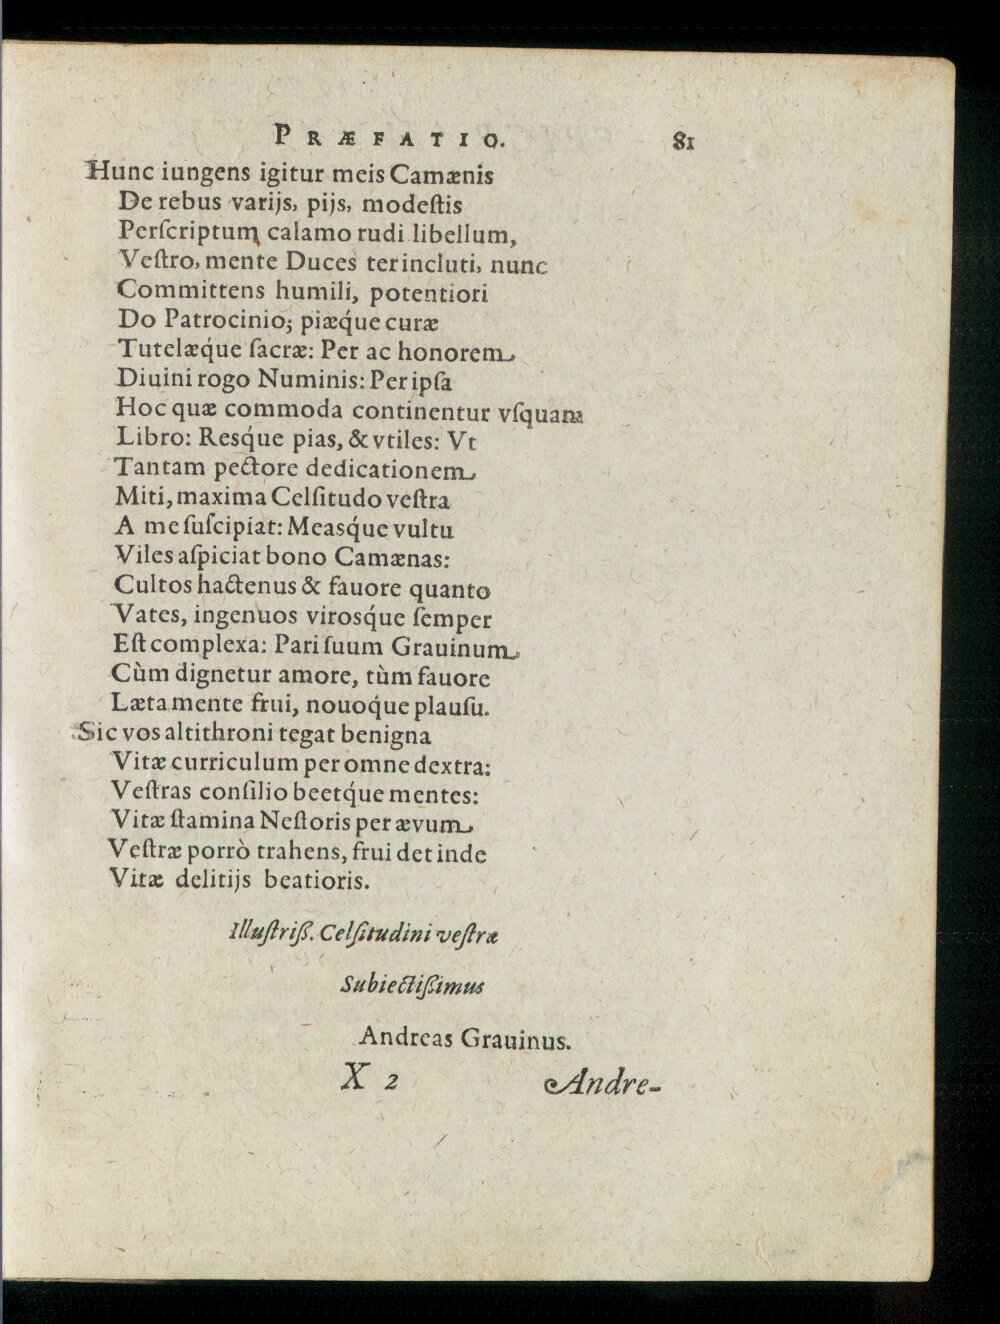 PRÆFATIO. 81
Hunc iungens igitur meis Camænis
De rebus varijs, pijs, modeſtis
Perſcriptum calamo rudi libellum,
Veſtro, mente Duces ter incluti, nunc
Committens humili, potentiori
Do Patrocinio; piæq́ue curæ
Tutelæq́ue ſacræ: Per ac honorem
Diuini rogo Numinis: Per ipſa
Hoc quæ commoda continentur vſquam
Libro: Resq́ue pias, & vtiles: Vt
Tantam pectore dedicationem
Miti, maxima Celſitudo veſtra
A me ſuſcipiat: Measq́ue vultu
Viles aſpiciat bono Camænas:
Cultos hactenus & fauore quanto
Vates, ingenuos virosq́ue ſemper
Eſt complexa: Pari ſuum Grauinum
Cùm dignetur amore, tùm fauore
Læta mente frui, nouoq́ue plauſu.
Sic vos altithroni tegat benigna
Vitæ curriculum per omne dextra:
Veſtras conſilio beetq́ue mentes:
Vitæ ſtamina Neſtoris per ævum
Veſtræ porrò trahens, frui det inde
Vitæ delitijs beatioris.
Illuſtriß. Celſitudini veſtræ
Subiectißimus
Andreas Grauinus.
X 2 Andre-